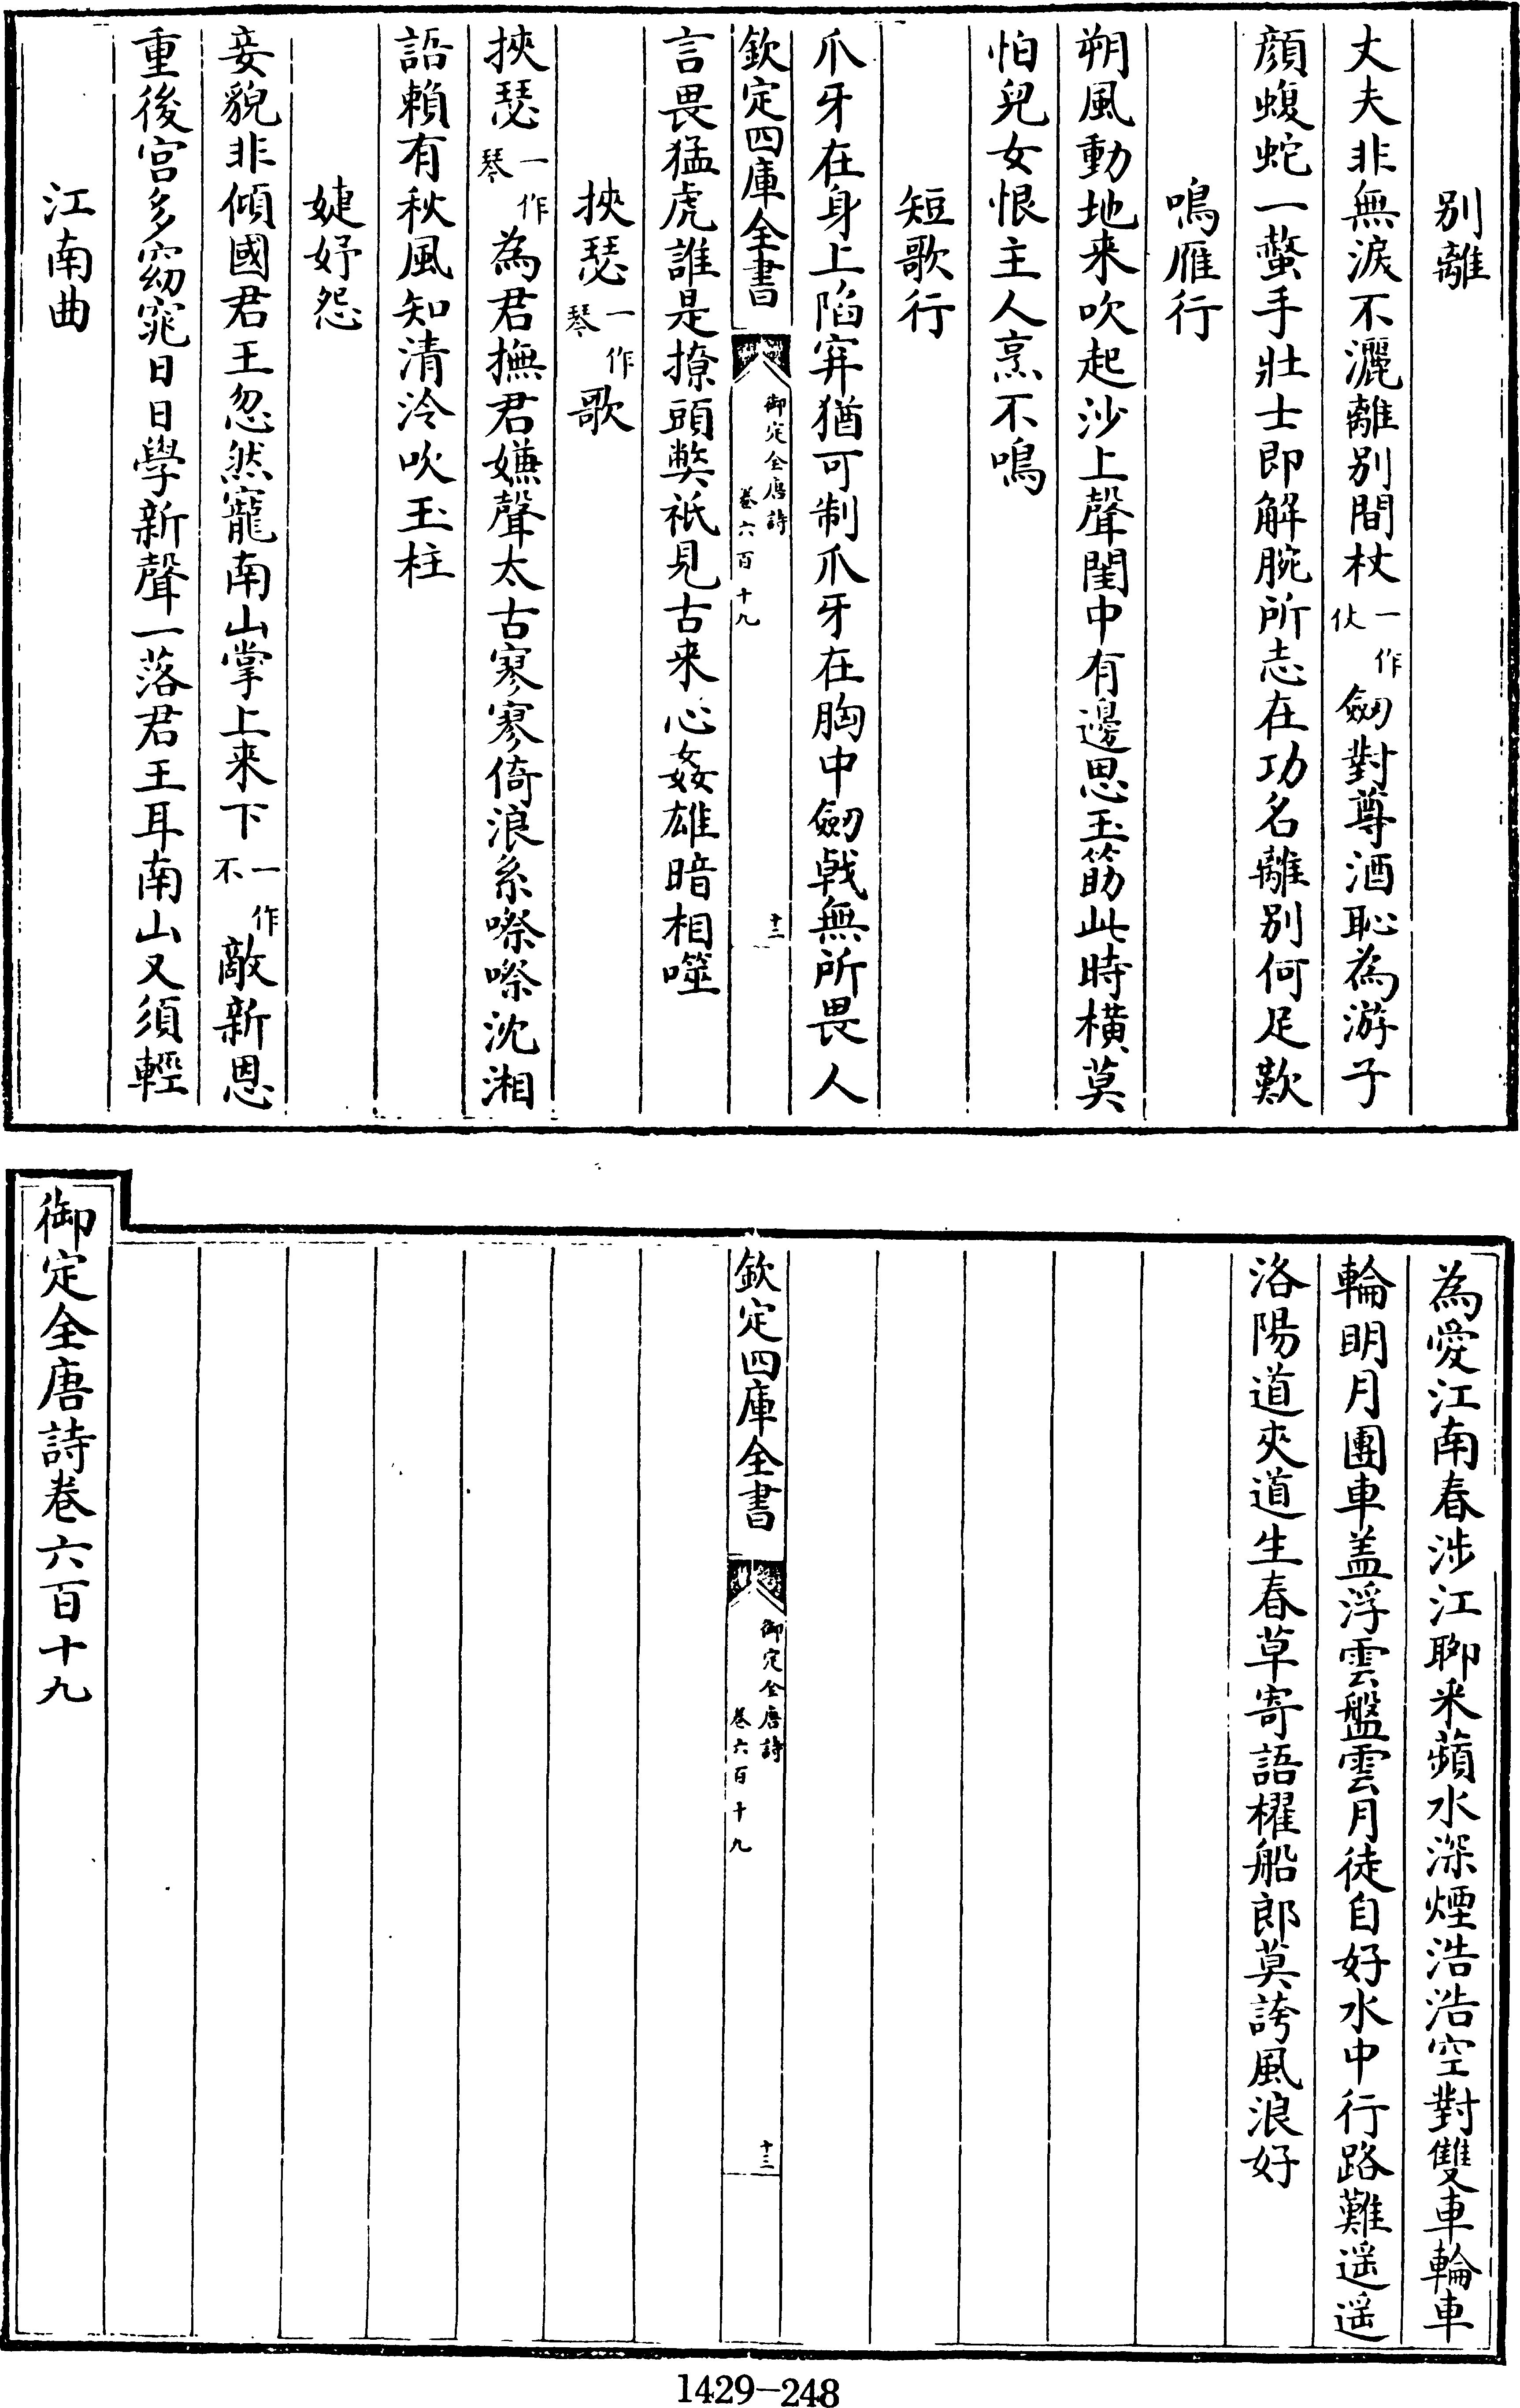 別離
丈夫非無淚不灑離別間杖一作仗劒對尊酒恥為游子
顔蝮蛇一螫手壯士即解腕所志在功名離別何足歎
鳴雁行
朔風動地来吹起沙上聲閨中有邊思玉筯此時横莫
怕兒女恨主人烹不鳴
短歌行
爪牙在身上陷穽猶可制爪牙在胸中劒㦸無所畏人
欽定四庫全書
御定全唐詩
卷六百十九
十二
言畏猛虎誰是撩頭斃祇見古来心姦雄暗相噬
挾瑟一作琴歌
挾瑟一作琴為君撫君嫌聲太古寥寥倚浪糸喍喍沈湘
語賴有秋風知清泠吹玉柱
婕妤怨
妾貌非傾國君王忽然寵南山掌上来下一作不敵新恩
重後宫多窈窕日日學新聲一落君王耳南山又須輕
江南曲
為愛江南春涉江聊采蘋水深煙浩浩空對雙車輪車
輪明月團車盖浮雲盤雲月徒自好水中行路難遥遥
洛陽道夾道生春草寄語櫂船郎莫誇風浪好
欽定四庫全書
御定全唐詩
卷六百十九
十三
御定全唐詩卷六百十九
1429-248